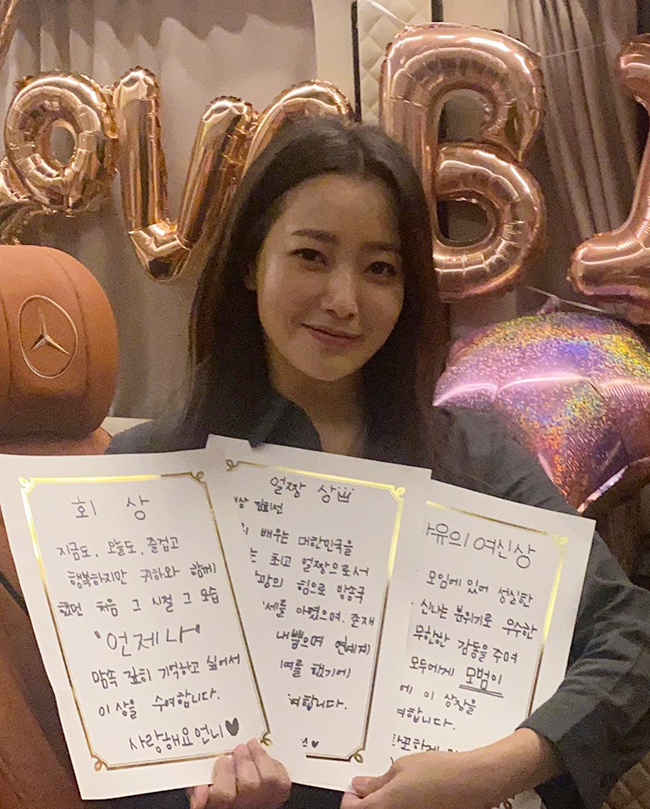 OV B
회 상
지금도, 오늘도, 즐겁고
행복하지만 귀하와 함께
했던 처음 그 시절 그 모습
"언제나"
맘속 깊히 기억하고 싶어서
이 상을 수여합니다.
사랑해요 언니♥
얼짱 상
상 김희선
배우는 대한민국을
는 최고 얼짱으로서
광의 힘으로 방송국
세를 아꼈으며, 존재
내뿜으며 연예계
여를 했기에
여합니다.
유의 여신상
모임에 있어 성실한
신나는 분위기로 우수한
무한한 감동을 주며
모두에게 모범이
에 이 상장을
여합니다.